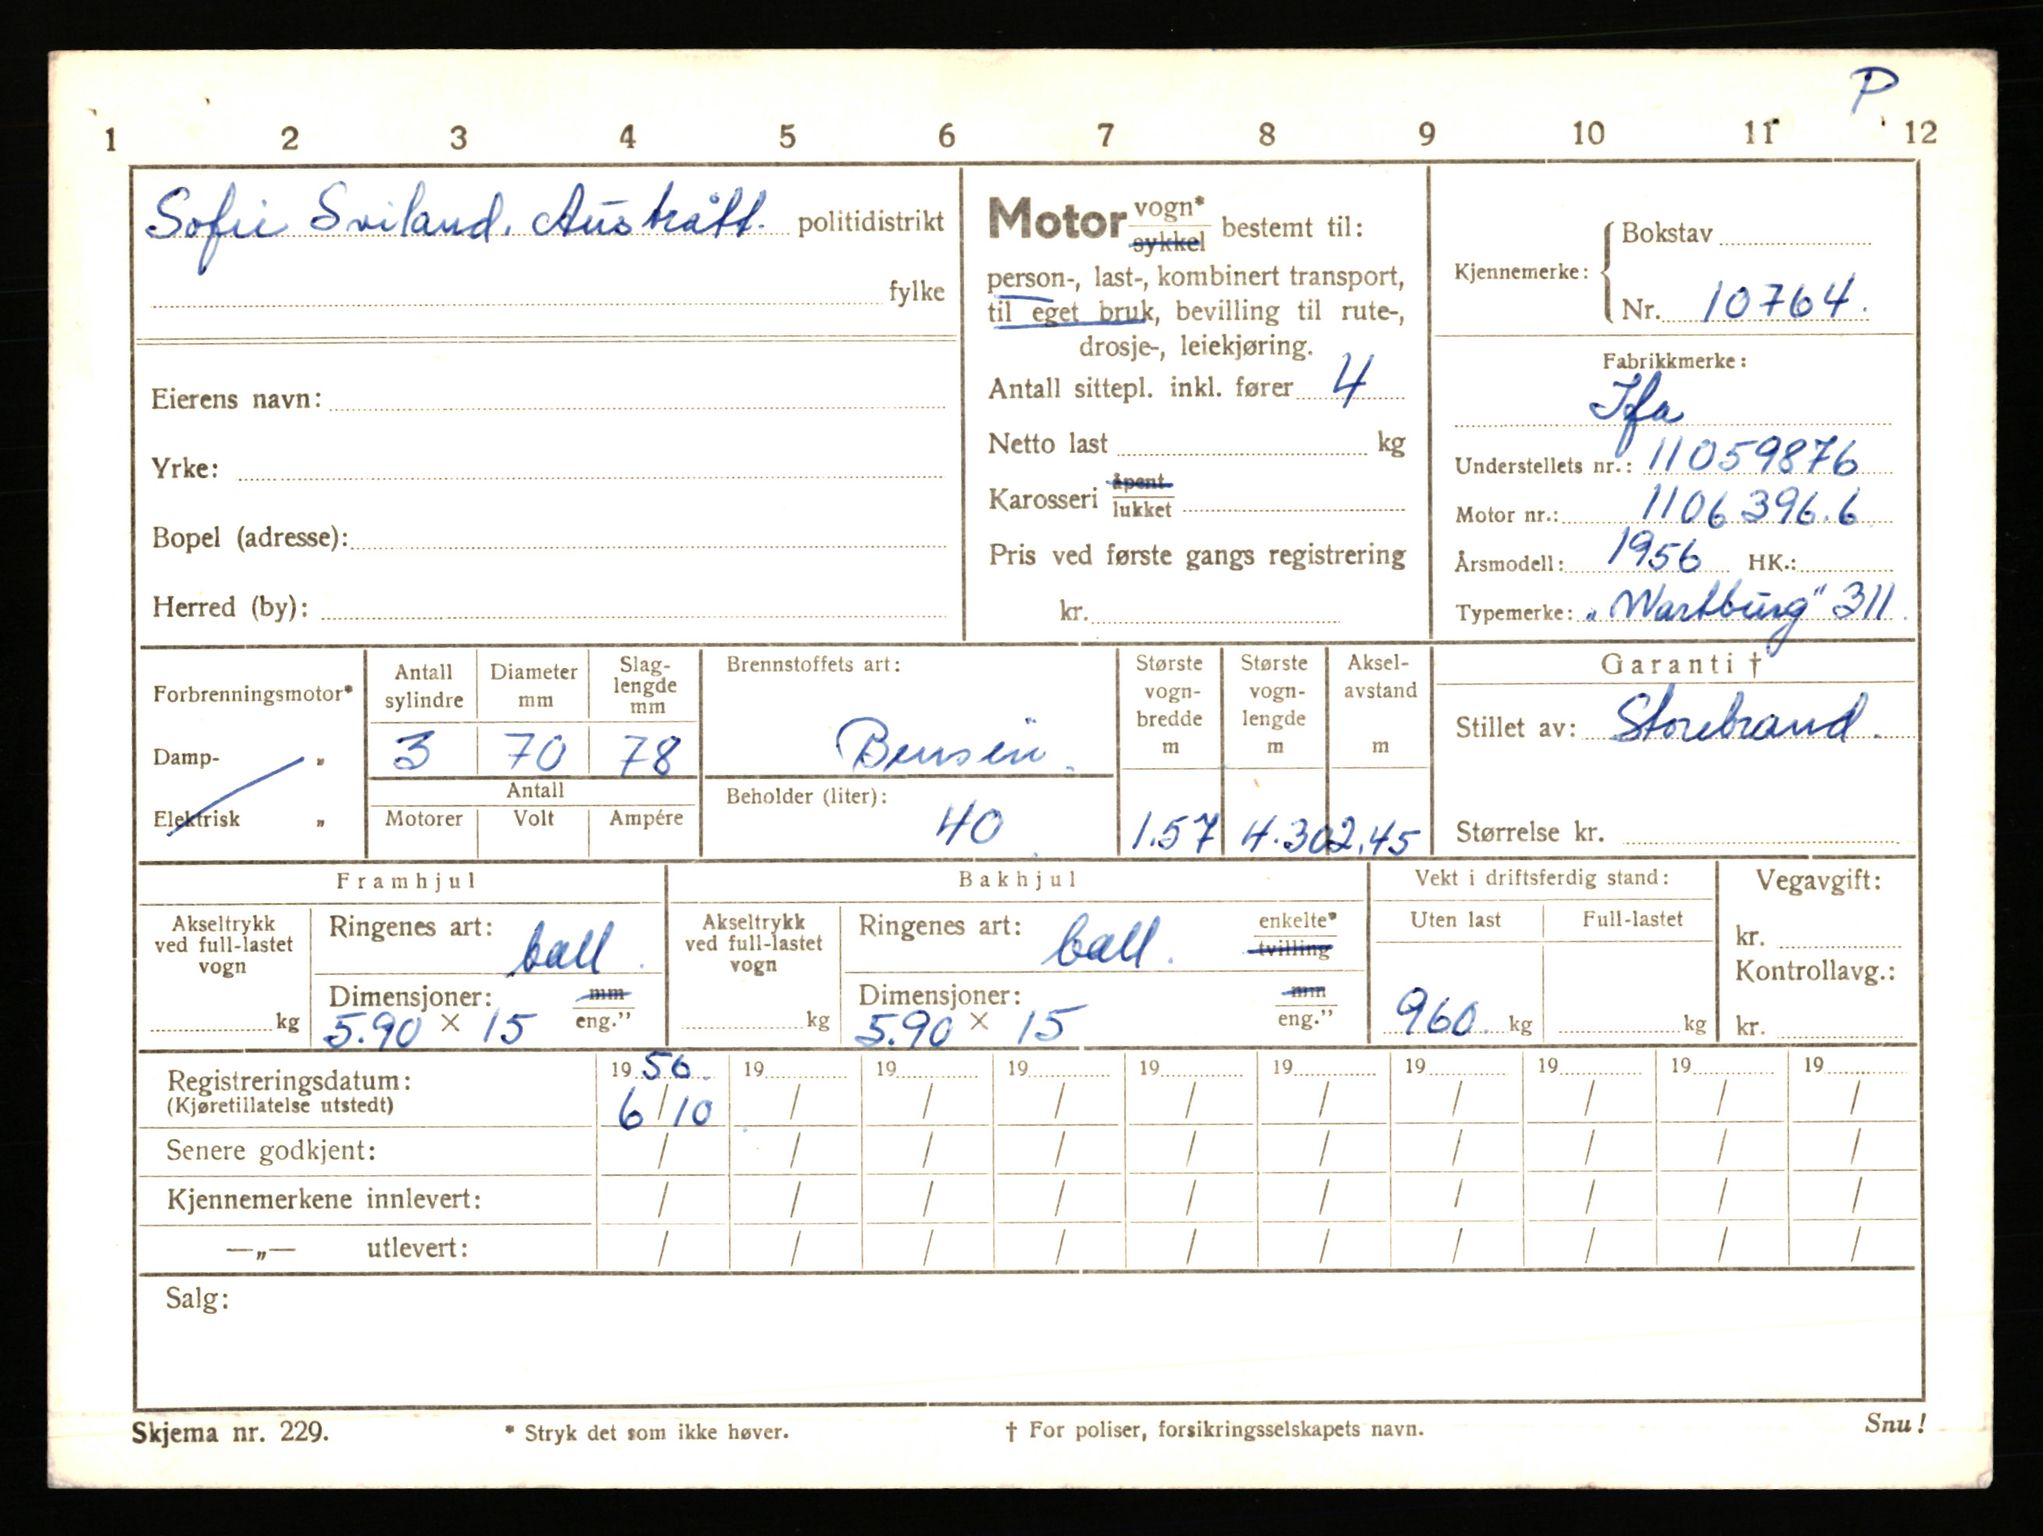 P
1 2 3 4 5 6 7 8 9 10 11 12
Sofie Sviland. Austrått. politidistrikt
fylke
Eierens navn:
Yrke:
Bopel (adresse):
Herred (by):
Motor vogn* sykkel bestemt til:
person-, last-, kombinert transport,
til eget bruk, bevilling til rute-,
drosje-, leiekjøring.
Antall sittepl. inkl. fører 4
Netto last kg
Karosseri åpent lukket
Pris ved første gangs registrering
kr.
Kjennemerke: Bokstav
Nr. 10764.
Fabrikkmerke:
Ifa
Understellets nr.: 11059876
Motor nr.: 1106396.6
Årsmodell: 1956 HK.:
Typemerke: „Wartburg" 311.
Forbrenningsmotor*
Damp- „
Elektrisk „
Antall sylindre
Diameter mm
Slag-lengde mm
3 70 78
Antall
Motorer Volt Ampére
Brennstoffets art:
Bensin.
Beholder (liter):
40
Største vogn-bredde m
1.57
Største vogn-lengde m
4.30
Aksel-avstand m
2.45
Garanti †
Stillet av: Storebrand.
Størrelse kr.
Framhjul
Akseltrykk
ved full-lastet
vogn
kg
Ringenes art: ball.
Dimensjoner: mm
5.90 × 15 eng."
Bakhjul
Akseltrykk
ved full-lastet
vogn
kg
Ringenes art: ball. enkelte* tvilling
Dimensjoner: mm
5.90 × 15 eng."
Vekt i driftsferdig stand:
Uten last Full-lastet
960 kg kg
Vegavgift:
kr.
Kontrollavg.:
kr.
Registreringsdatum: 1956. 19 19 19 19 19 19 19 19 19
(Kjøretillatelse utstedt) 6/10 / / / / / / / / /
Senere godkjent: / / / / / / / / / /
Kjennemerkene innlevert: / / / / / / / / / /
—„— utlevert: / / / / / / / / / /
Salg:
Skjema nr. 229. * Stryk det som ikke høver. † For poliser, forsikringsselskapets navn. Snu!